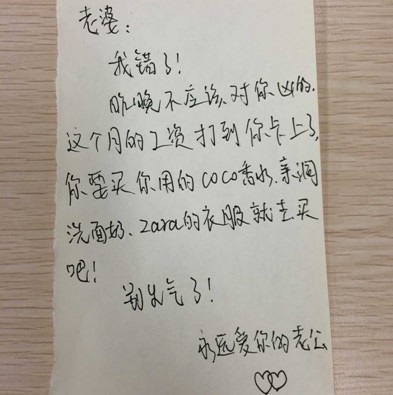 老婆：
我错了！
昨晚不应该对你凶的.
这个月的工资打到你卡上了,
你要买你用的COCO香水.亲润
洗面奶、zara的衣服就去买
吧！
别生气了！
永远爱你的老公